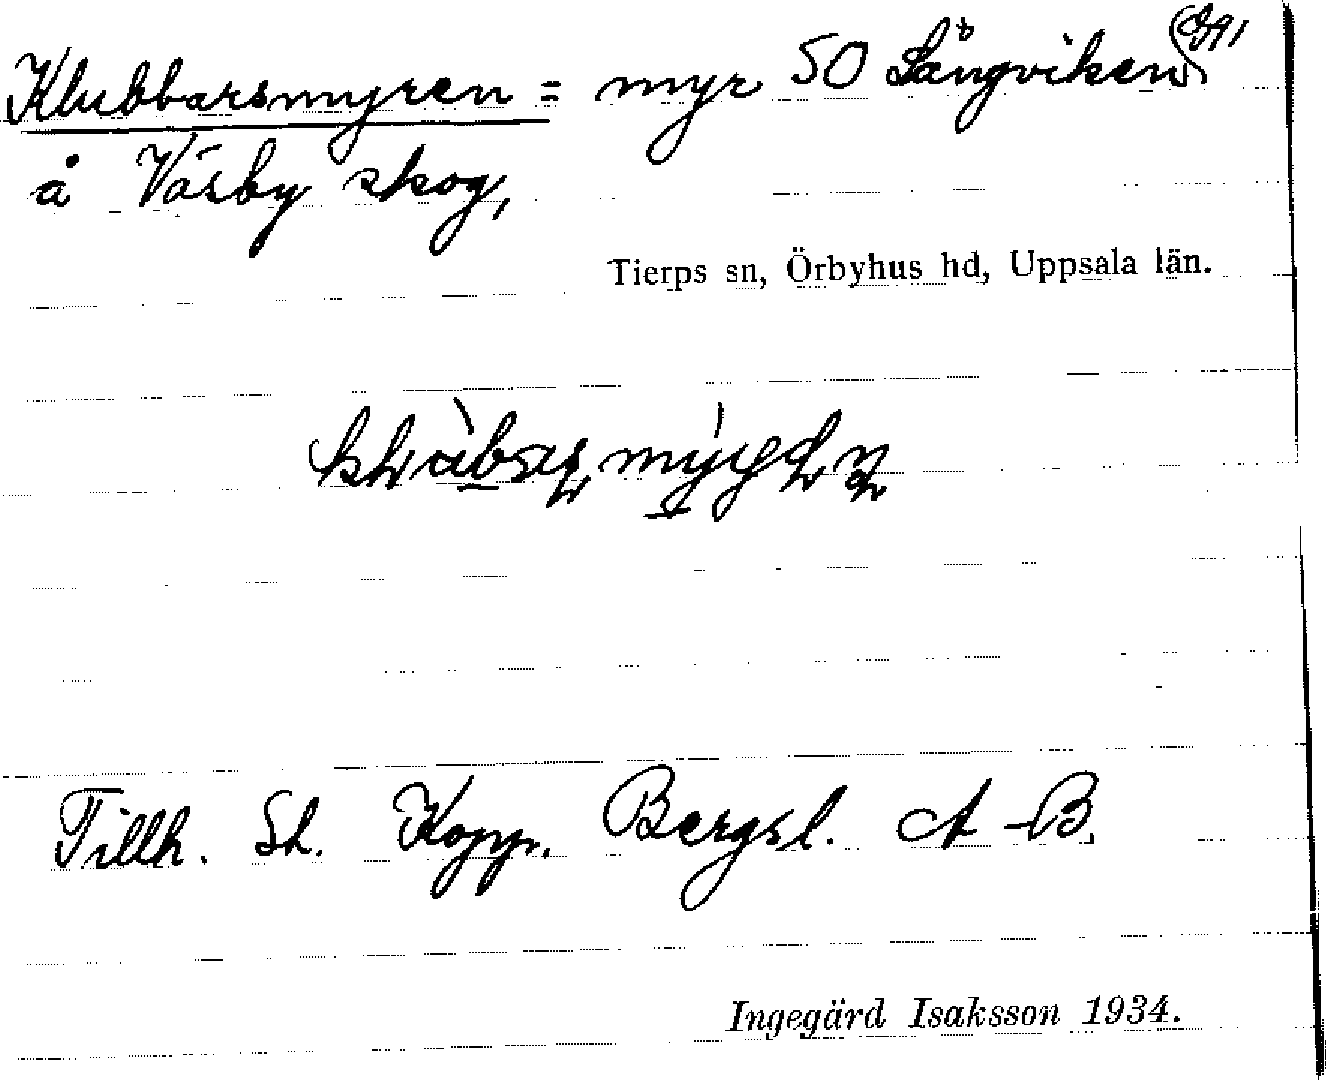 Klubbarsmyren = myr SO Långviken
å Väsby skog,
Tierps sn, Örbyhus hd, Uppsala län.
Tillh. St. Kopp. Bergsl. A-B.
Ingegärd Isaksson 1934.